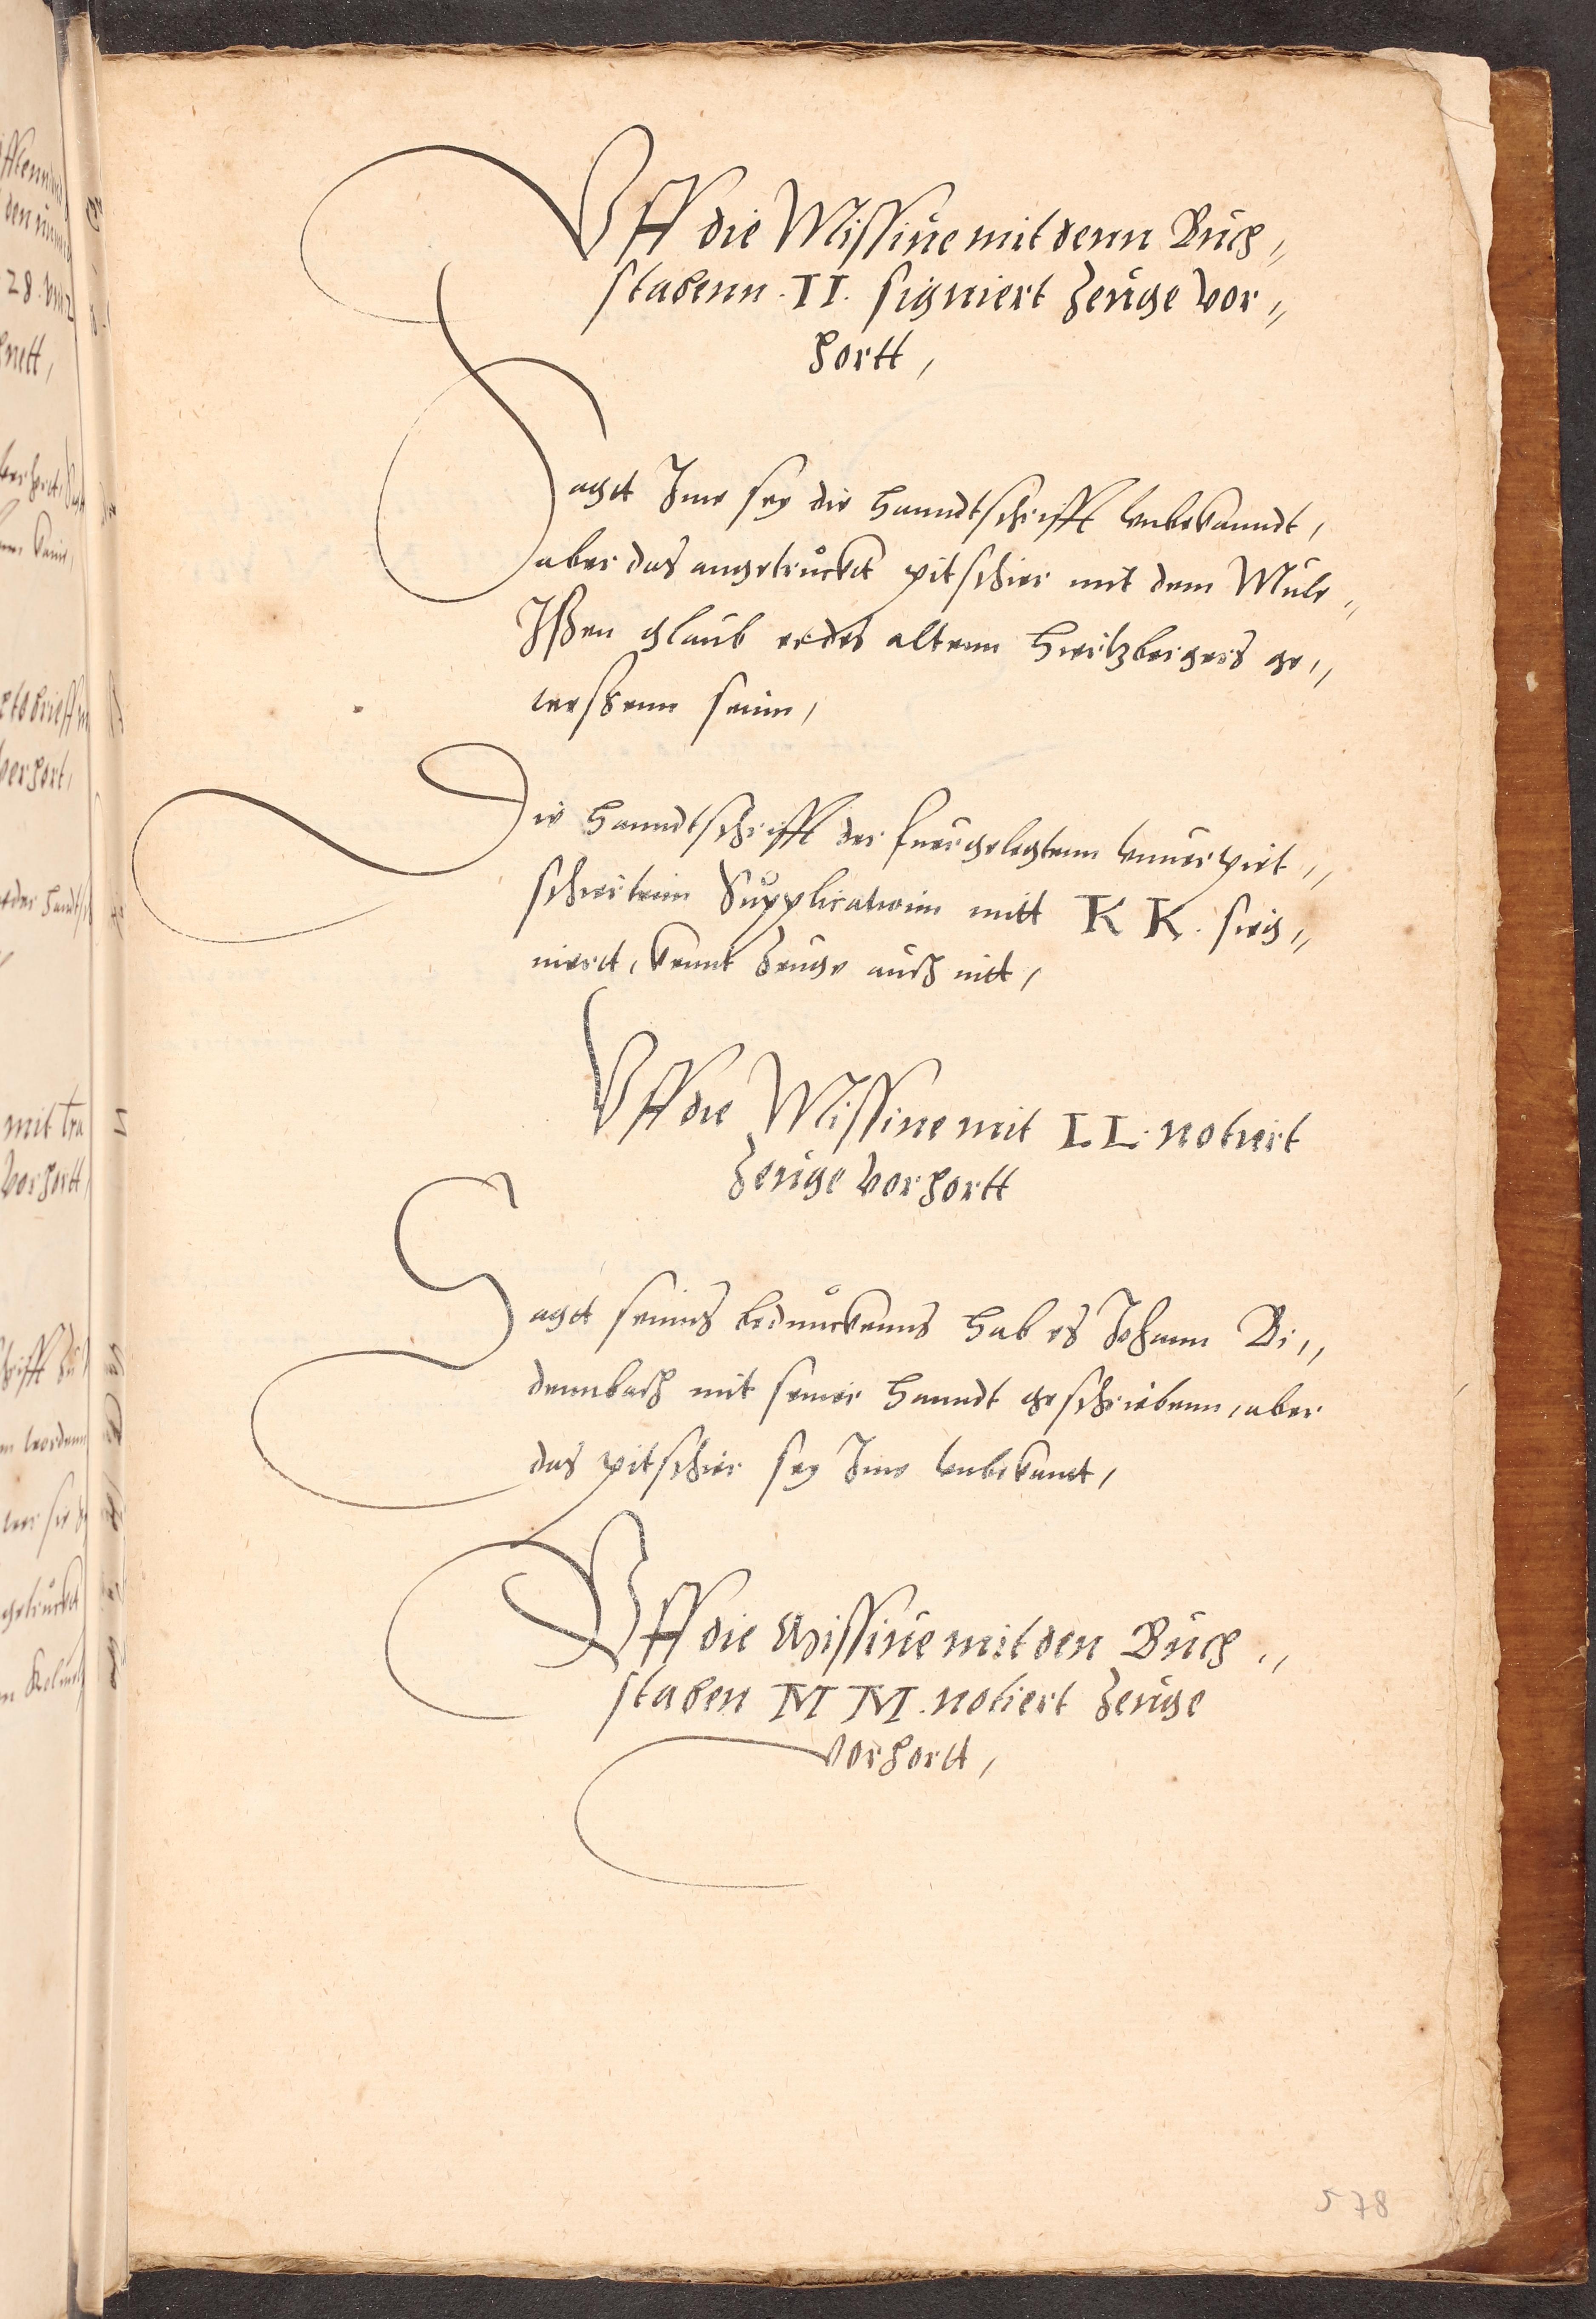 Vff die Missiue mit denn Buch„
stabenn . II . signiert Zeuge vor„
hortt,
Sagt Ime sey die Hanndtschrifft vnbekanndt,
aber das angetruckt pitschier mit dem Mule„
Ißen glaub er des altenn Hirtzbergers ge„
weßenn seinn,
Die Hanndtschrifft der fuergelegtenn vnuerpit„
schiertenn Supplicationn mitt K K . sig„
niert, kennt Zeuge auch nitt,
Vff die Missiue mit L L . notiert
Zeuge vorhortt
Sagt seines beduckenns hab es Johann Bi„
dennbach mit seiner Hanndt geschriebenn, aber
das pitschier sey Ime vnbekannt,
Vff die Missiue mit den Buch„
staben M M . notiert Zeuge
vorhortt,
578